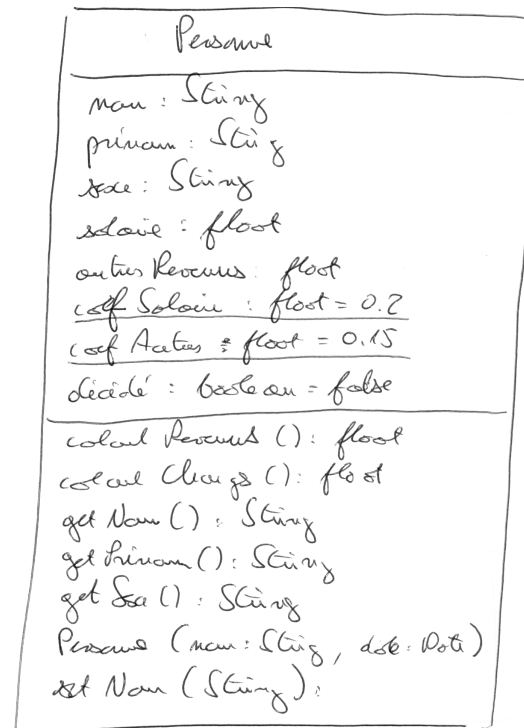 Personne
nom : String
prénom : String
sexe : String
salaire : float
autres Revenus : float
coef Salaire : float = 0.2
coef Autres : float = 0.15
décidé : boolean = false
calcul Revenus () : float
calcul Charges () : float
get Nom () : String
get Prénom () : String
get Sexe () : String
Personne (nom : String, date : Date)
set Nom (String) :